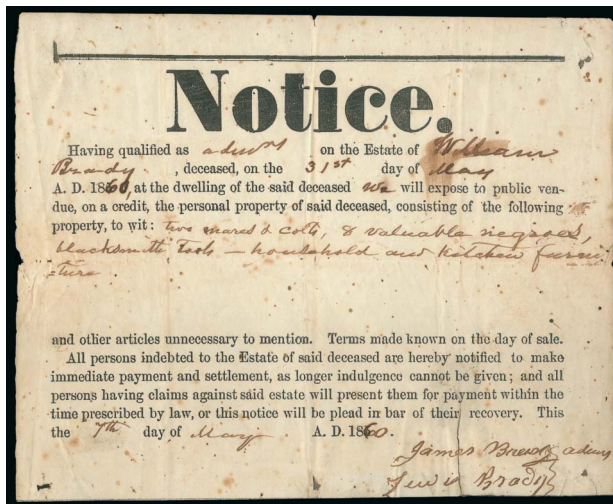 Notice.
Having qualified as admrs on the Estate of William
Brady, deceased, on the 31st day of May
A. D. 1860, at the dwelling of the said deceased we will expose to public ven-
due, on a credit, the personal property of said deceased, consisting of the following
property, to wit: two mares & colts, 8 valuable negroes,
blacksmith tools – household and kitchen furni
ture
and other articles unnecessary to mention. Terms made known on the day of sale.
All persons indebted to the Estate of said deceased are hereby notified to make
immediate payment and settlement, as longer indulgence cannot be given; and all
persons having claims against said estate will present them for payment within the
time prescribed by law, or this notice will be plead in bar of their recovery. This
the 7th day of May A. D. 1860.
James Brady admrs
Lewis Brady